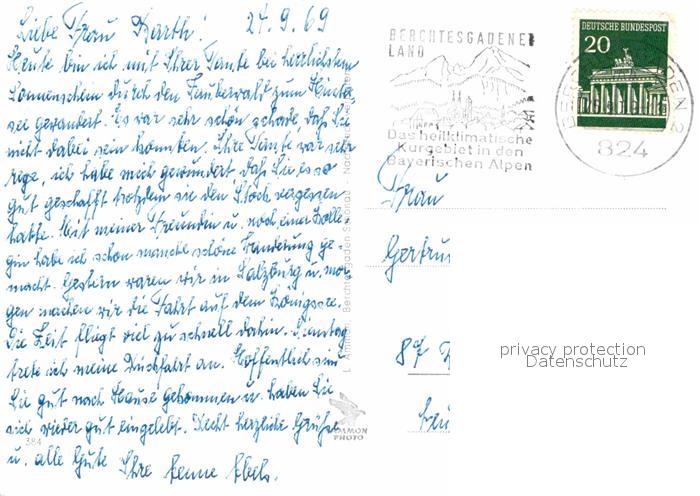 Liebe Frau Barth! 27.9.69
Heute bin ich mit Ihrer Tante bei herrlichstem
Sonnenschein durch den Zauberwald zum Hinter-
see gewandert. Es war sehr schön schade, daß Sie
nicht dabei sein konnten. Ihre Tante war sehr
rige, ich habe mich gewundert, daß Sie es so
gut geschafft trotzdem sie den Stock vergessen
hatte. Mit meiner Freundin u. noch einer Kolle-
gin habe ich schon manche schöne Wanderung ge-
macht. Gestern waren wir in Salzburg u. mor-
gen machen wir die Fahrt auf dem Königssee.
Die Zeit fliegt viel zu schnell dahin. Dienstag
trete ich meine Rückfahrt an. Hoffentlich sind
Sie gut nach Hause gekommen u. haben Sie
sich wieder gut eingelebt. Recht herzliche Grüße
u. alle Gute Ihre
384
L. Ammon, Berchtesgaden Schönau
AMMON
PHOTO
BERCHTESGADENER
LAND
Das heilklimatische
Kurgebiet in den
Bayerischen Alpen
DEUTSCHE BUNDESPOST
20
824
Frau
Gertru
87
privacy protection
Datenschutz